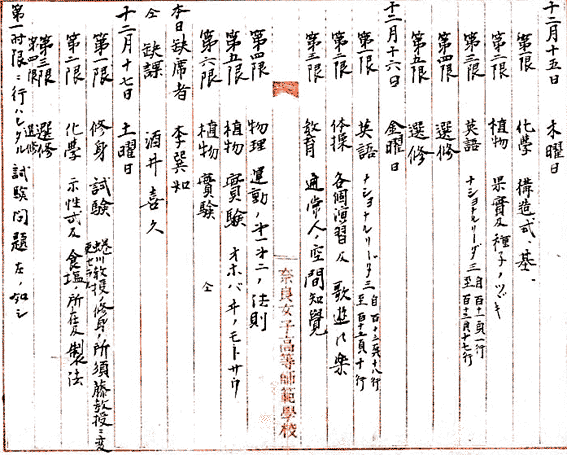 十二月十五日　木曜日
第一限　化學　構造式、基、
第二限　植物　果實及種子ノツヾキ
第三限　英語　ナショナルリーダ三　自百十一頁一行　至百十三頁十七行
第四限　選修
第五限　選修
十二月十六日　金曜日
第一限　英語　ナショナルリーダ三　自百十三頁十八行　至百十五頁十行
第二限　体操　各個演習及歌遊
第三限　教育　通常人ノ空間知覺
奈良女子高等師範學校
第四限　物理　運動ノ才一才二ノ法則
第五限　植物實験　オホバヰノモトサウ
第六限　植物實験　仝
本日缺席者　李巽知
仝缺課　酒井喜久
十二月十七日　土曜日
第一限　修身　試験　蜷川教授ノ修身ノ所須藤教授ニ変更セラル
第二限　化學　示性式及食塩ノ所在及製法
第三限　選修
第四限　選修
第一时限ニ行ハレタル試験問題左ノ如シ